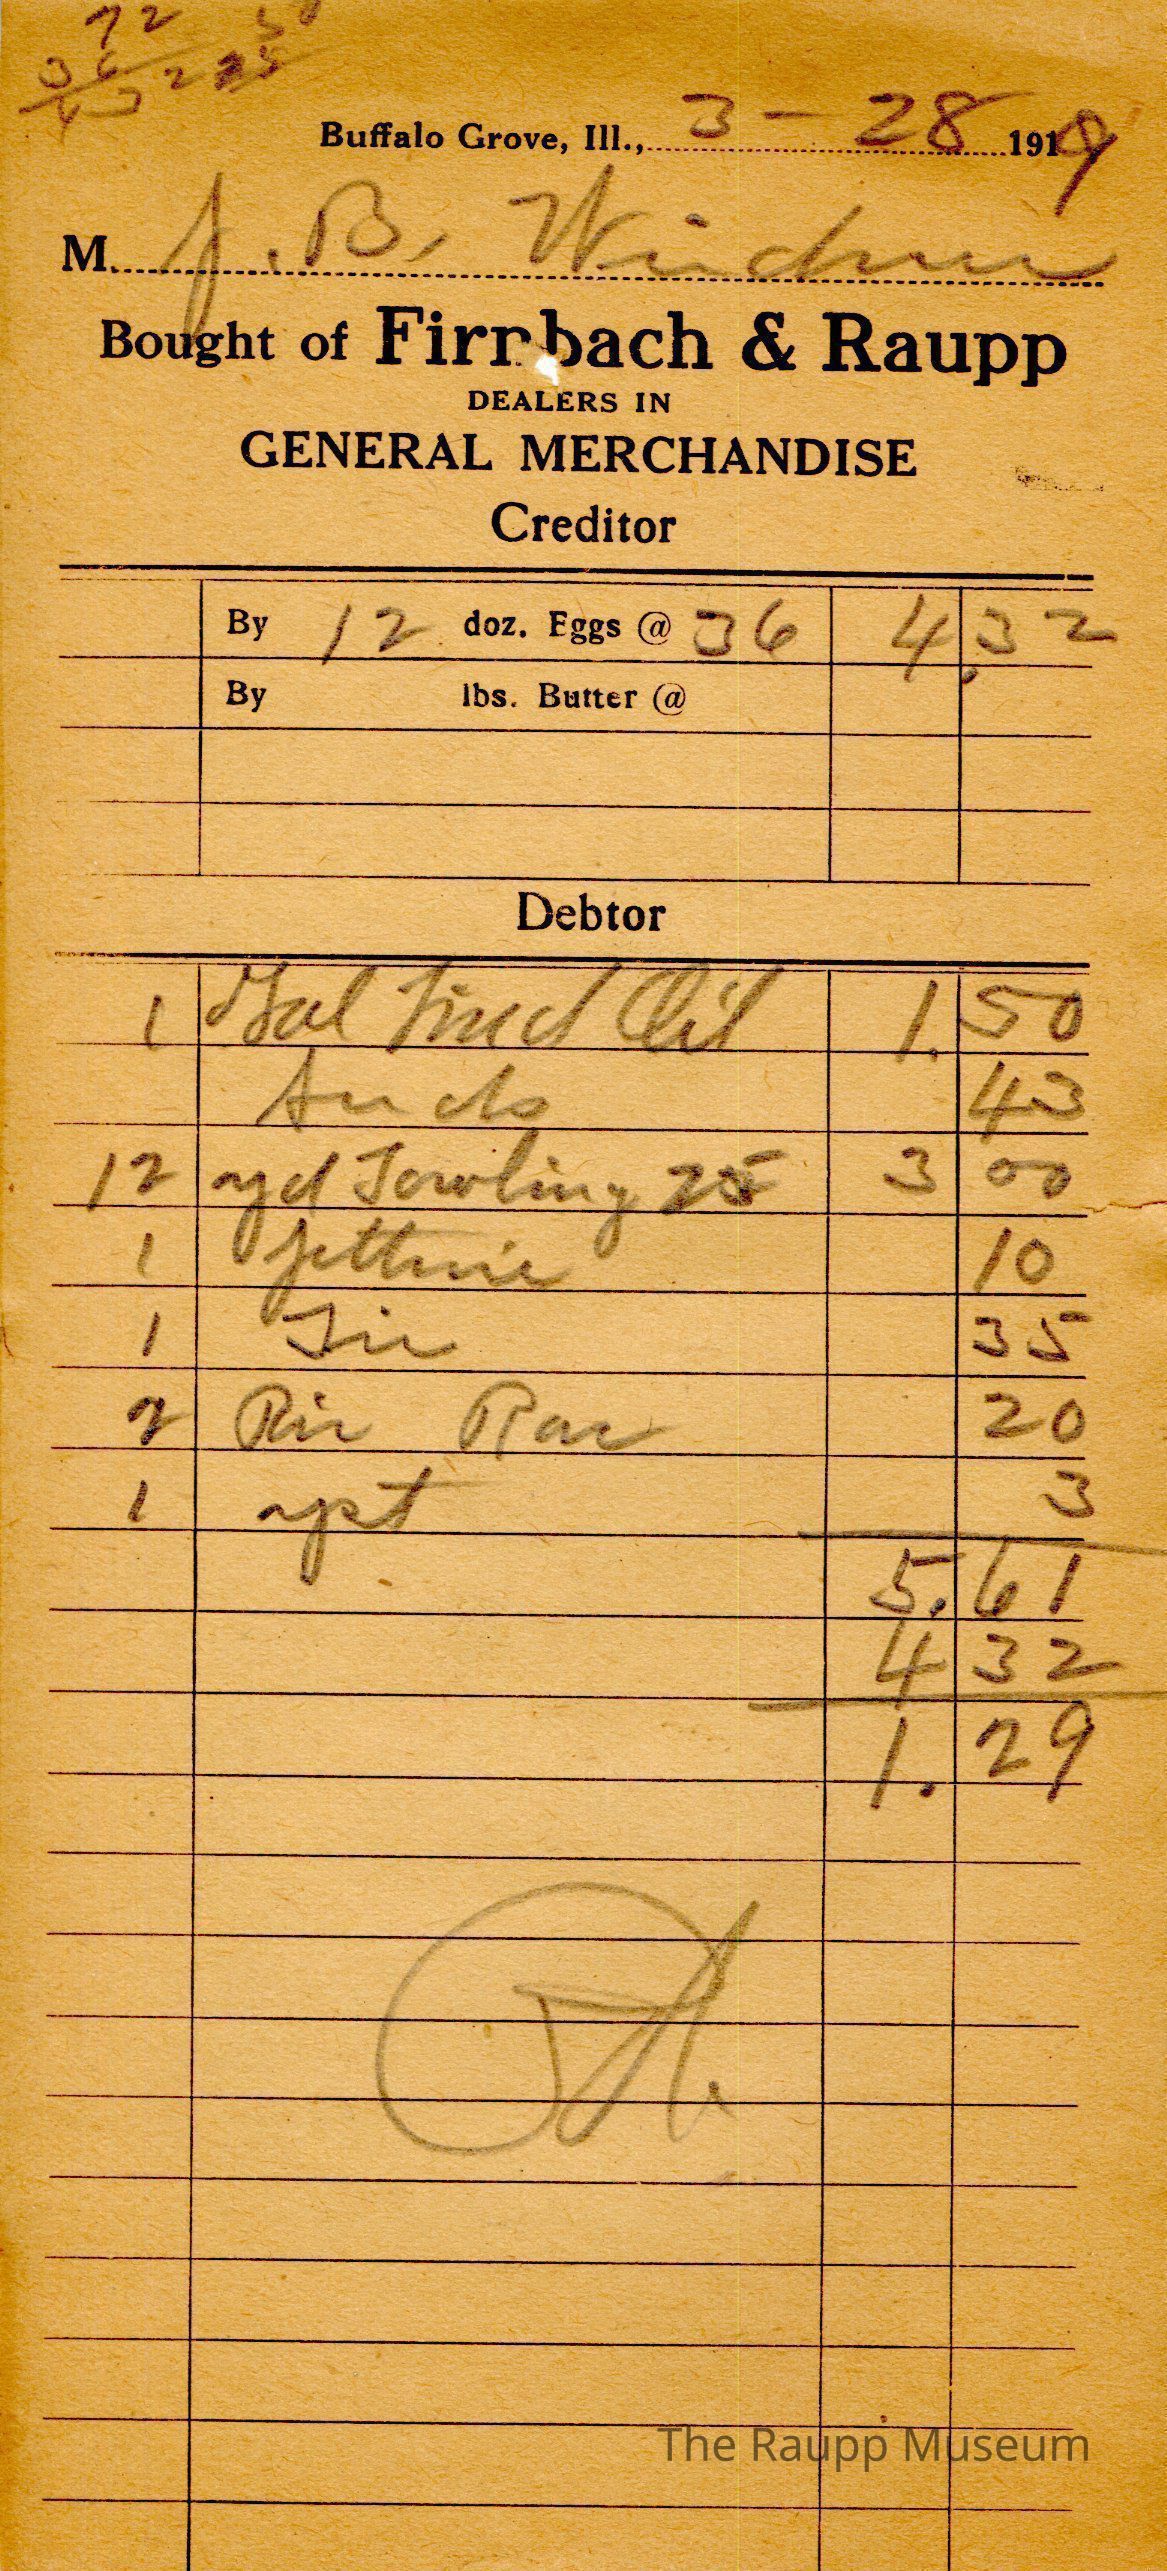 72 50
36 2 25
43
Buffalo Grove, Ill., 3 - 28 1919
M. J. B. Weidner
Bought of Firnbach & Raupp
DEALERS IN
GENERAL MERCHANDISE
Creditor
By 12 doz. Eggs @ 36 4.32
By lbs. Butter @
Debtor
1 Gal Lined Oil 1.50
43
12 yd Towling 25 3 00
1 10
1 35
2 Ric Rac 20
1 3
5.61
4 32
1.29
The Raupp Museum